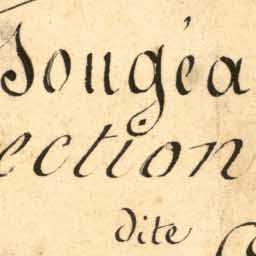 Sougéa
ection
dite